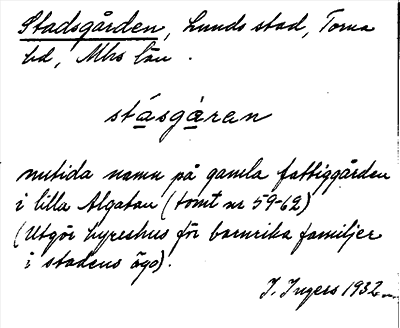 Stadsgården, Lunds stad, Torna
hd, Mhs län.
stásgàren
nutida namn på gamla fattiggården
i lilla Algatan (tomt nr 59-62)
(Utgör hyreshus för barnrika familjer
i stadens ägo).
I. Ingers 1932